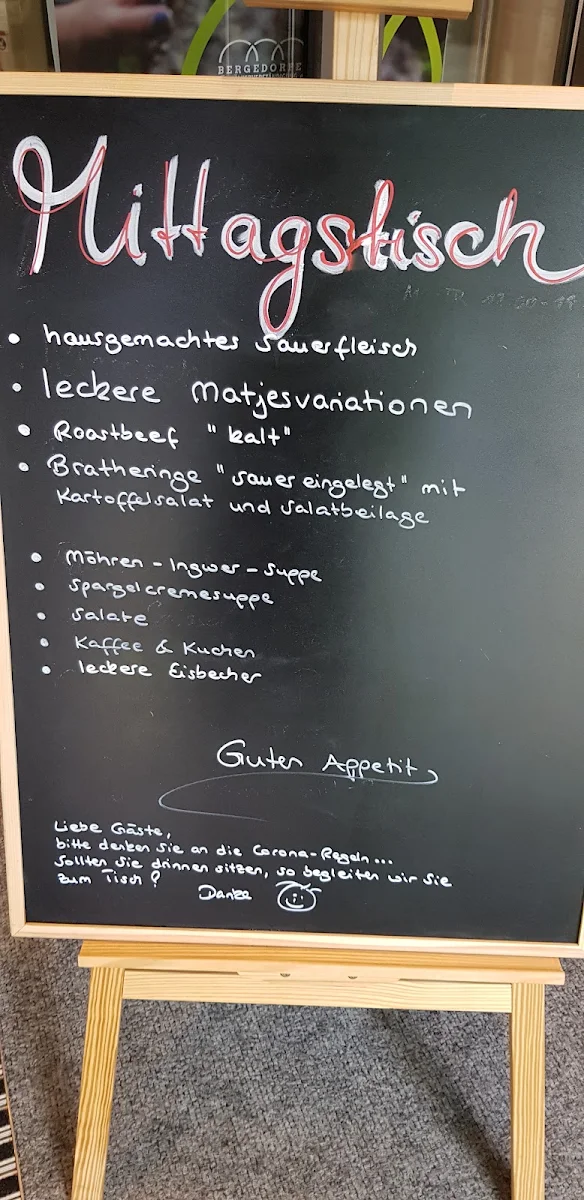 BERGEDORFE
Mittagstisch
• hausgemachtes Sauerfleisch
• leckere Matjesvariationen
• Roastbeef "kalt"
• Bratheringe "sauer eingelegt" mit
Kartoffelsalat und Salatbeilage
• Möhren-Ingwer-Suppe
• Spargelcremesuppe
• Salate
• Kaffee & Kuchen
• leckere Eisbecher
Guten Appetit
Liebe Gäste,
bitte denken Sie an die Corona-Regeln...
Sollten Sie drinnen sitzen, so begleiten wir Sie
zum Tisch!
Danke